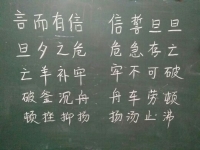 言而有信 信誓旦旦
旦夕之危 危急存亡
亡羊补牢 牢不可破
破釜沉舟 舟车劳顿
顿挫抑扬 扬汤止沸